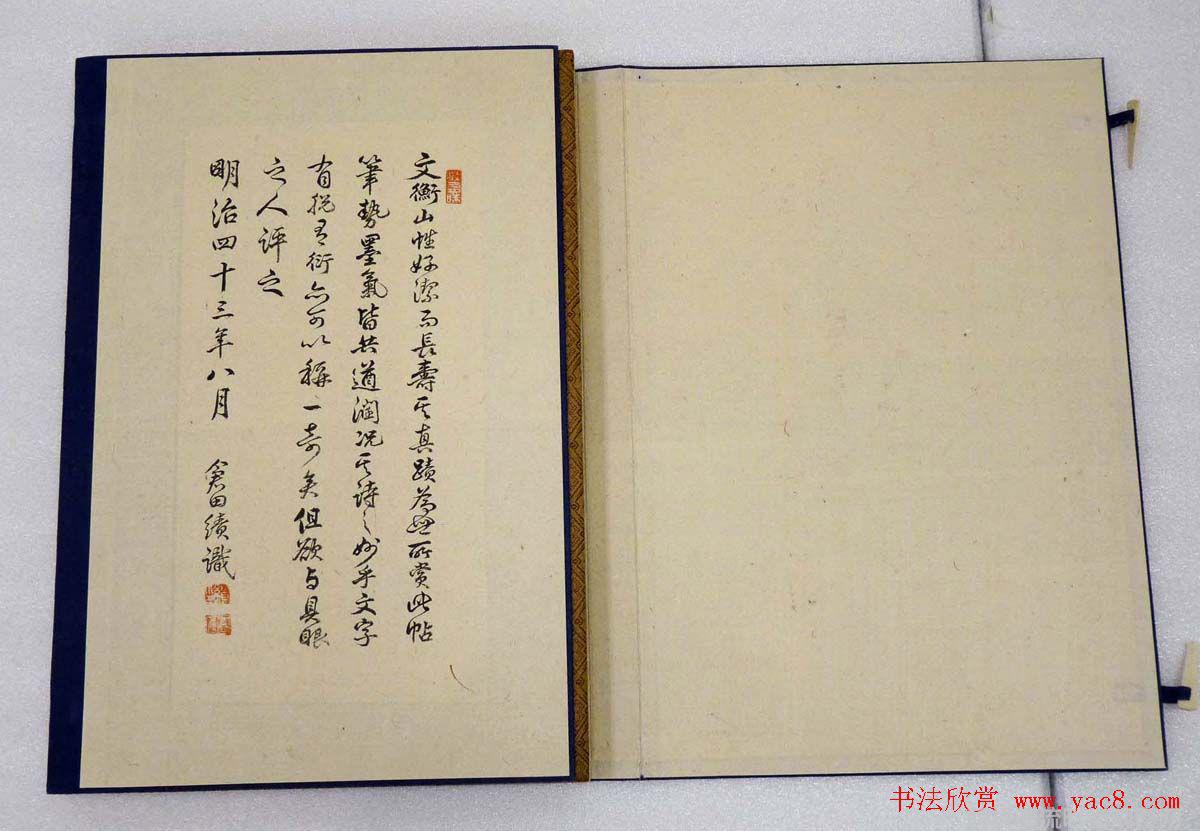 文衡山性好潔而長壽其真蹟為世所賞此帖
筆勢墨氣皆共遒潤况其詩之妙乎文字
有脱有衍亦可以稱一奇矣但欲与具眼
之人評之
明治四十三年八月 倉田績識
书法欣赏 www.yac8.com